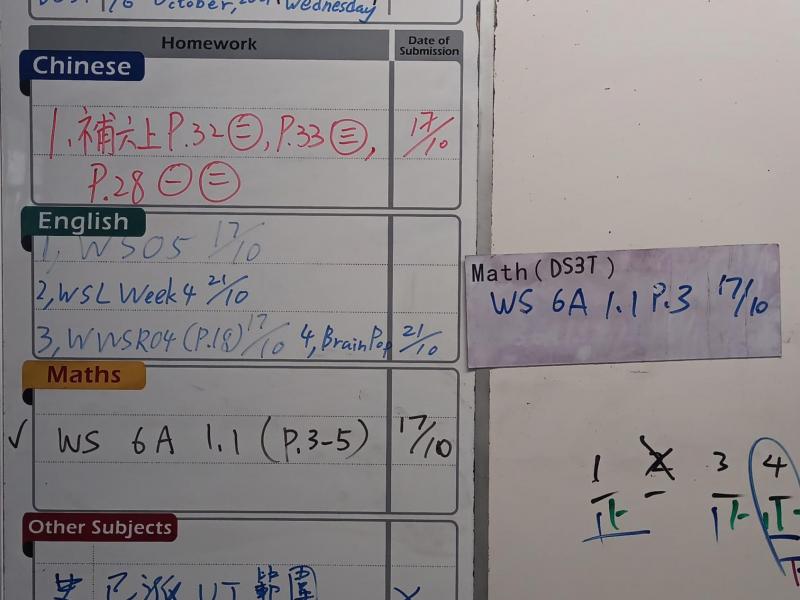 16 October, Wednesday
Homework
Date of Submission
Chinese
1.補六上 P.32㊂, P.33㊂, 17/10
P.28 ㊀ ㊂
English
1, WS05 17/10
2, WSL Week 4 21/10
3, WWSR04 (P.18) 17/10 4, BrainPop 21/10
Maths
✓ WS 6A 1.1 (P.3-5) 17/10
Math (DS3T)
WS 6A 1.1 P.3 17/10
1 2 3 4
Other Subjects
已派 UT 範圍